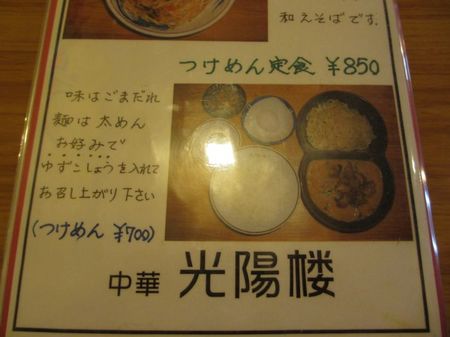 和えそばです.
つけめん定食 ¥850
味はごまだれ
麺は太めん
お好みで
ゆずこしょうを入れて
お召し上がり下さい
(つけめん ¥700)
中華 光陽楼